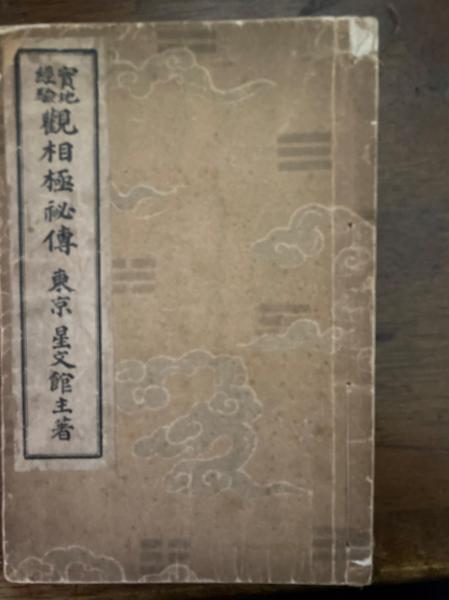 實地
經驗
觀相極祕傳
東京星文館主著